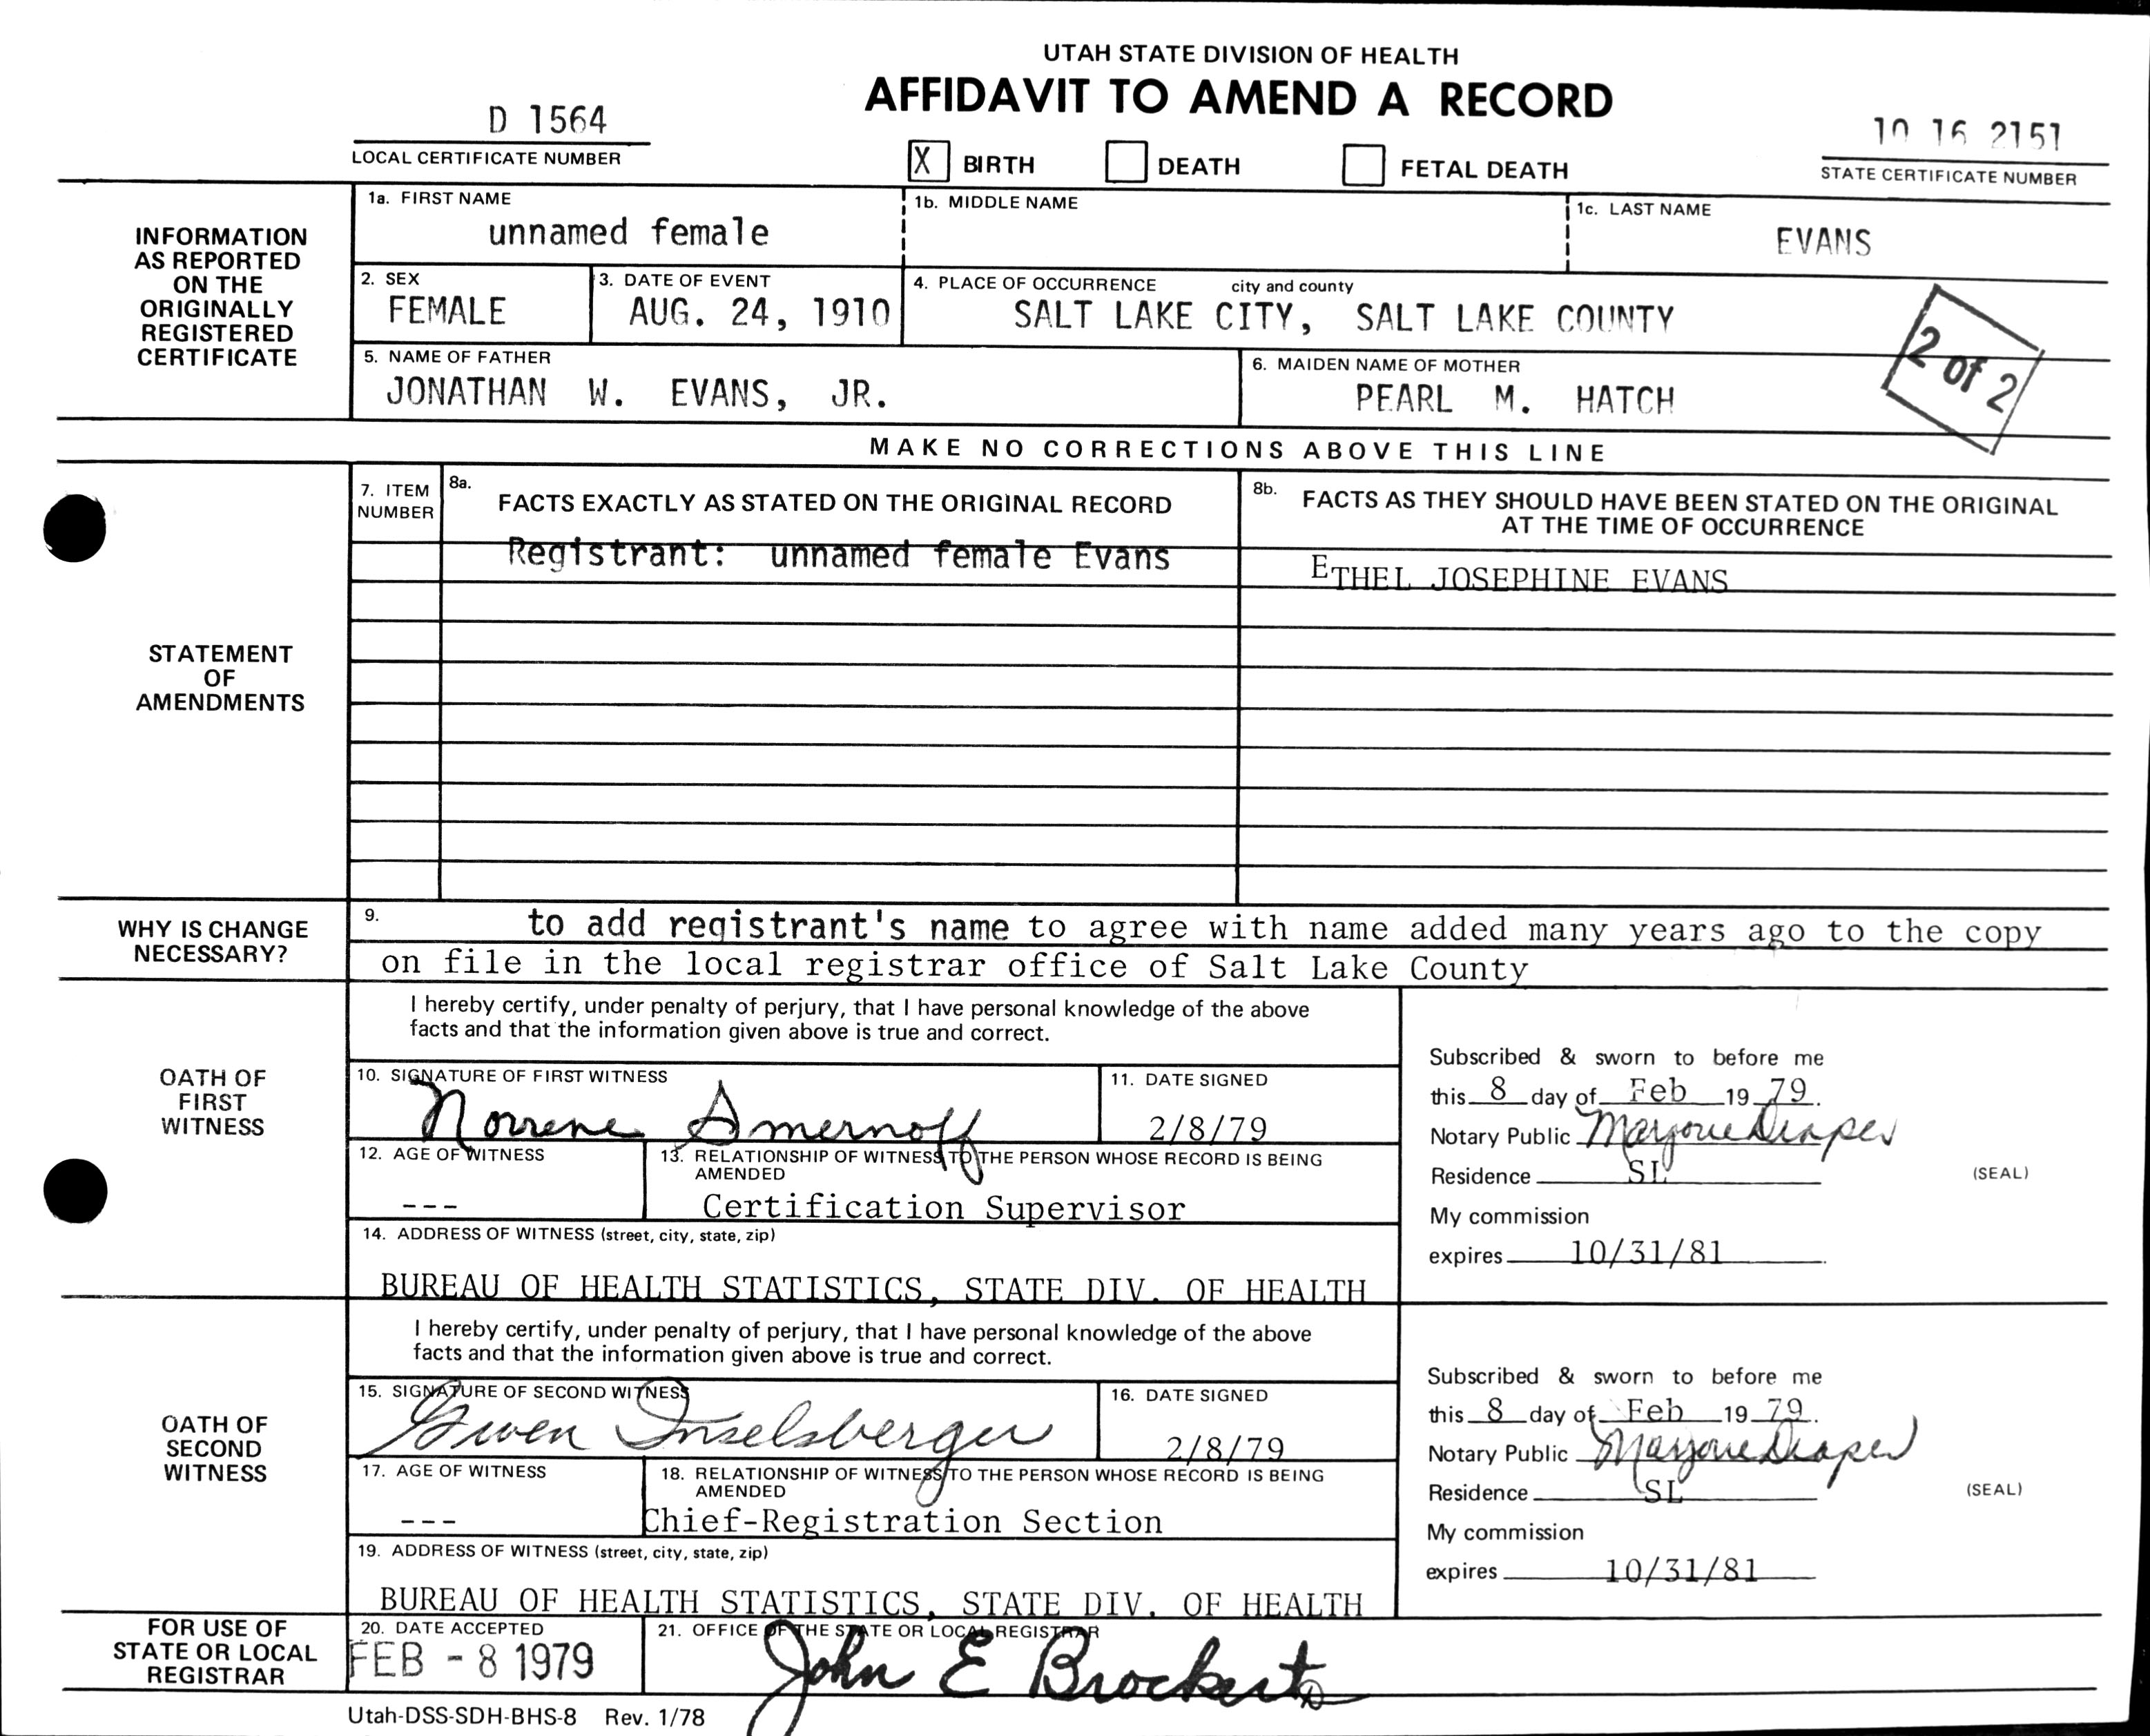 UTAH STATE DIVISION OF HEALTH
AFFIDAVIT TO AMEND A RECORD
D 1564
LOCAL CERTIFICATE NUMBER
X BIRTH DEATH FETAL DEATH
10 16 2151
STATE CERTIFICATE NUMBER
INFORMATION
AS REPORTED
ON THE
ORIGINALLY
REGISTERED
CERTIFICATE
1a. FIRST NAME
unnamed female
1b. MIDDLE NAME
1c. LAST NAME
EVANS
2. SEX
FEMALE
3. DATE OF EVENT
AUG. 24, 1910
4. PLACE OF OCCURRENCE city and county
SALT LAKE CITY, SALT LAKE COUNTY
5. NAME OF FATHER
JONATHAN W. EVANS, JR.
6. MAIDEN NAME OF MOTHER
PEARL M. HATCH
2 of 2
MAKE NO CORRECTIONS ABOVE THIS LINE
STATEMENT
OF
AMENDMENTS
7. ITEM
NUMBER
8a.
FACTS EXACTLY AS STATED ON THE ORIGINAL RECORD
8b. FACTS AS THEY SHOULD HAVE BEEN STATED ON THE ORIGINAL
AT THE TIME OF OCCURRENCE
Registrant: unnamed female Evans
ETHEL JOSEPHINE EVANS
WHY IS CHANGE
NECESSARY?
9. to add registrant's name to agree with name added many years ago to the copy
on file in the local registrar office of Salt Lake County
OATH OF
FIRST
WITNESS
I hereby certify, under penalty of perjury, that I have personal knowledge of the above
facts and that the information given above is true and correct.
10. SIGNATURE OF FIRST WITNESS
Norrene Smernoff
11. DATE SIGNED
2/8/79
12. AGE OF WITNESS
---
13. RELATIONSHIP OF WITNESS TO THE PERSON WHOSE RECORD IS BEING
AMENDED
Certification Supervisor
14. ADDRESS OF WITNESS (street, city, state, zip)
BUREAU OF HEALTH STATISTICS, STATE DIV. OF HEALTH
Subscribed & sworn to before me
this 8 day of Feb 19 79.
Notary Public Marjorie Draper
Residence SL (SEAL)
My commission
expires 10/31/81
OATH OF
SECOND
WITNESS
I hereby certify, under penalty of perjury, that I have personal knowledge of the above
facts and that the information given above is true and correct.
15. SIGNATURE OF SECOND WITNESS
Gwen Inselsberger
16. DATE SIGNED
2/8/79
17. AGE OF WITNESS
---
18. RELATIONSHIP OF WITNESS TO THE PERSON WHOSE RECORD IS BEING
AMENDED
Chief-Registration Section
19. ADDRESS OF WITNESS (street, city, state, zip)
BUREAU OF HEALTH STATISTICS, STATE DIV. OF HEALTH
Subscribed & sworn to before me
this 8 day of Feb 19 79.
Notary Public Marjorie Draper
Residence SL (SEAL)
My commission
expires 10/31/81
FOR USE OF
STATE OR LOCAL
REGISTRAR
20. DATE ACCEPTED
FEB - 8 1979
21. OFFICE OF THE STATE OR LOCAL REGISTRAR
John E Brockert
Utah-DSS-SDH-BHS-8 Rev. 1/78